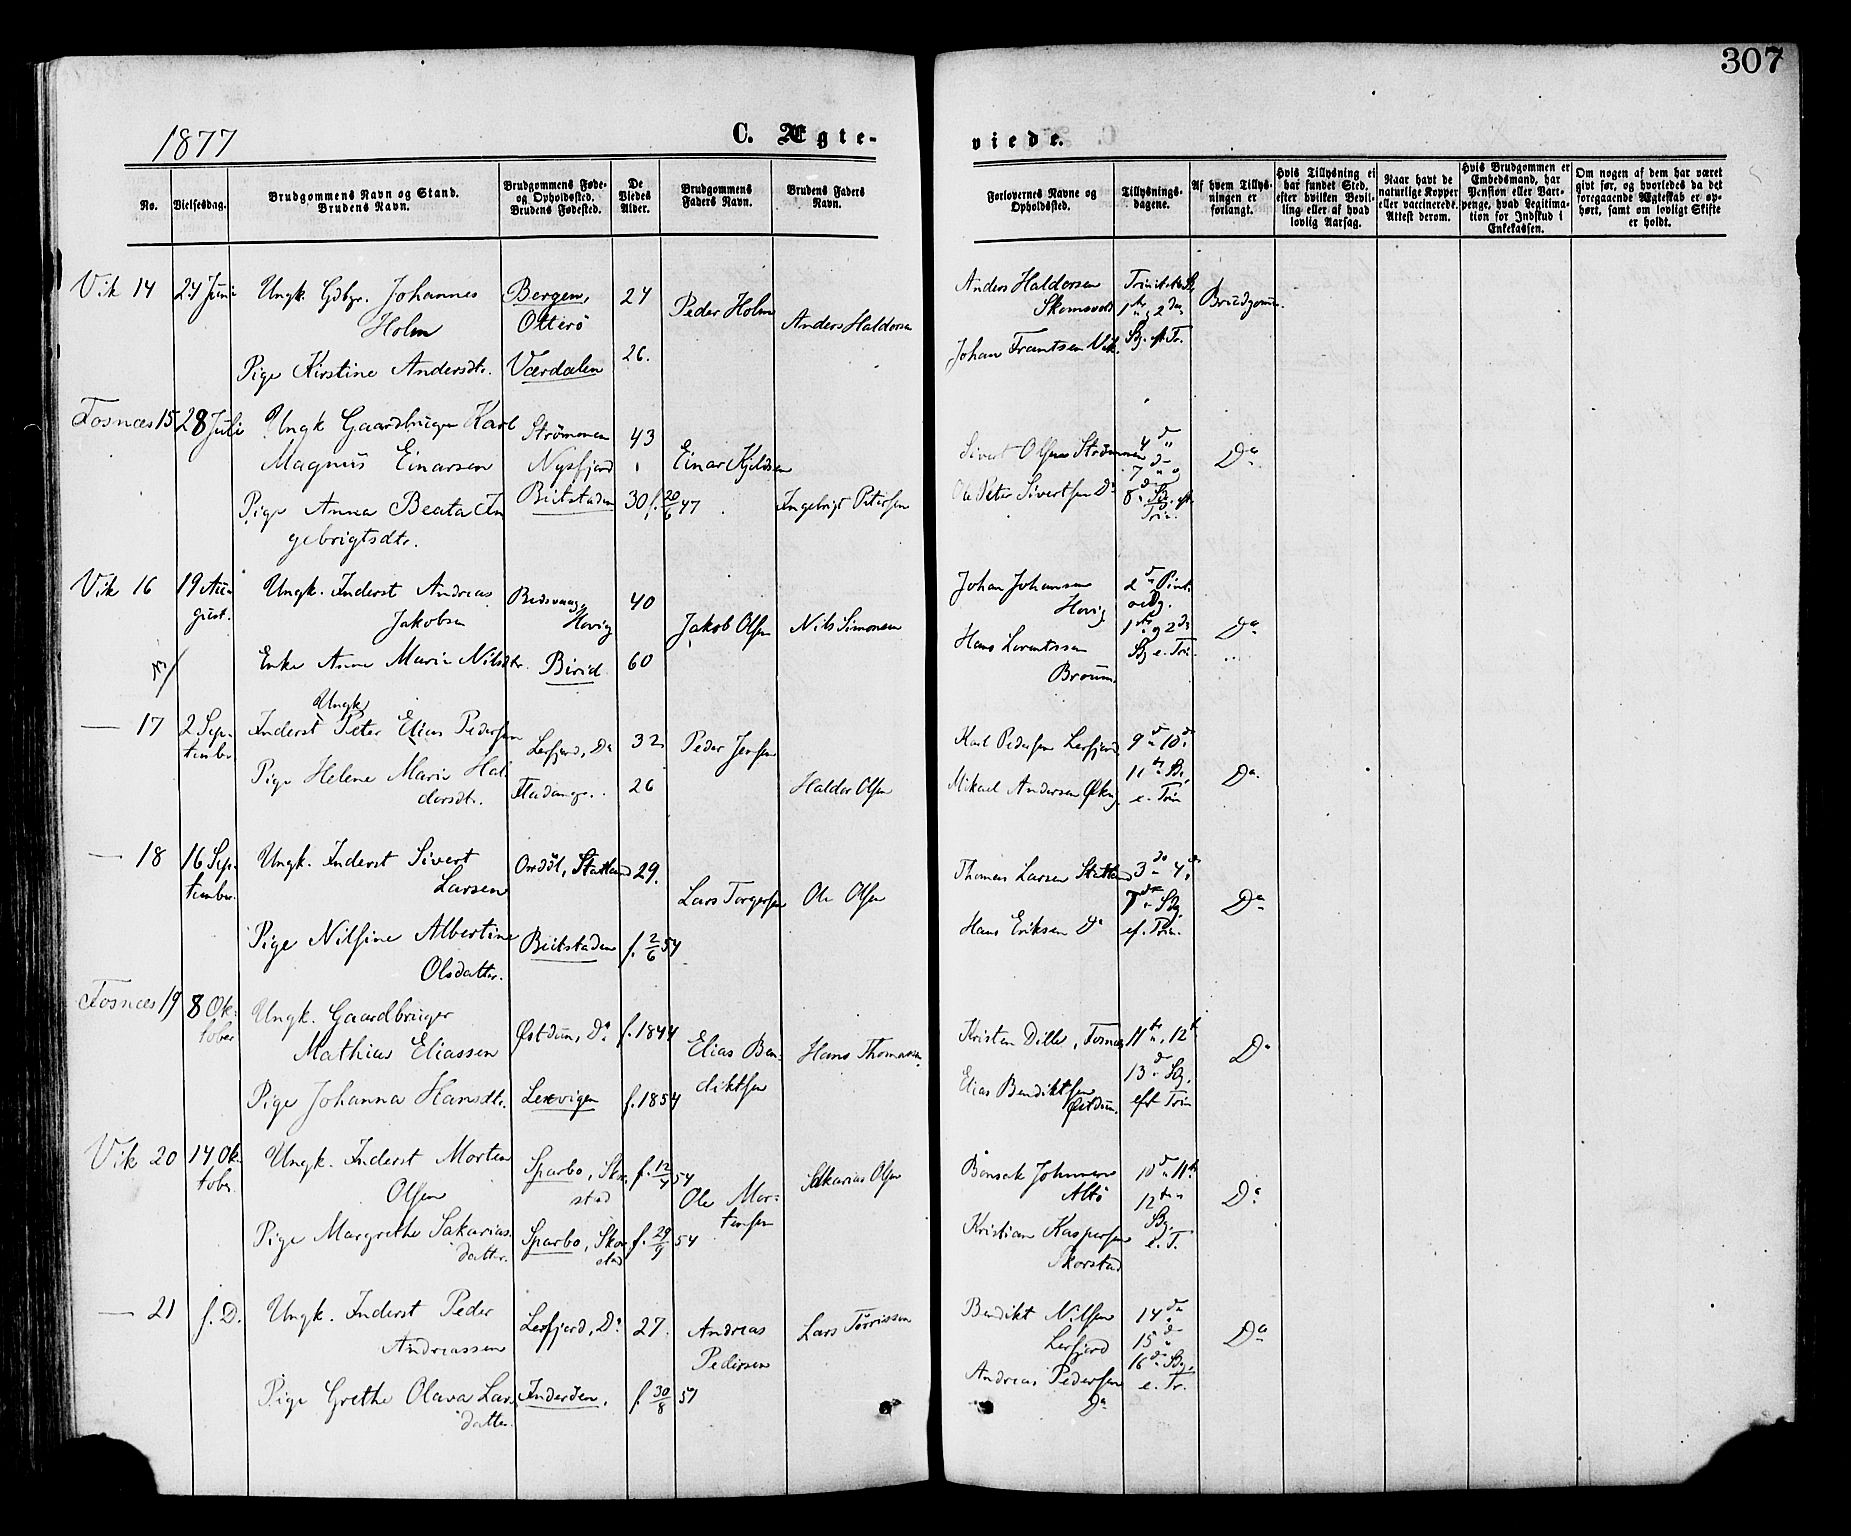 307
1877
C. Ægte-
viede.
No.
Vielsesdag.
Brudgommens Navn og Stand.
Brudens Navn.
Brudgommens Føde-
og Opholdssted.
Brudens Fødested.
De
Viedes
Alder.
Brudgommens
Faders Navn.
Brudens Faders
Navn.
Forlovernes Navne og
Opholdssted.
Tillysnings-
dagene.
Af hvem Tillys-
ningen er
forlangt.
Hvis Tillysning ei
har fundet Sted,
efter hvilken Bevil-
ling eller af hvad
lovlig Aarsag.
Naar havt de
naturlige Kopper
eller vaccinerede.
Attest derom.
Hvis Brudgommen er
Embedsmand, har
Pension eller Vart-
penge, hvad Legitima-
tion for Indskud i
Enkekassen.
Om nogen af dem har været
givt før, og hvorledes da det
foregaaende Ægteskab er op-
hørt, samt om lovligt Skifte
er holdt.
Vik 14
24 Juni
Ungk. Gdbr. Johannes
Holm
Bergen,
Otterö
24
Peder Holm
Anders Haldorsen
Anders Haldorsen
Skomsvold
1ste og 2den
Brudgom.
Pige Kirstine Andersdtr.
Værdalen
26.
Johan Frantsen Vik.
Sg. e. Tr.
Fosnæs 15
28 Juli
Ungk Gaardbruger Karl
Magnus Einarsen
Strömmen
43
Einar Kjeldsen
Sivert Olsen Strömmen
4de
7de
Da
Pige Anna Beata In
gebrigtsdtr.
Beitstaden
30 f. 20/6 47
Ingebrigt Petersen
Ole Peter Sivertsen Do
8de Sg. eft.
Trin.
Vik 16
19 Au-
gust.
Ungk. Inderst Andreas
Jakobsen
Hovig
40
Jakob Olsen
Nils Simonsen
Johan Johansen
Hovig
2den Pint
1ste og 2den
Da
Enke Anne Marie Nilsdtr.
Birid
60
Hans Lorentssen
Braum.
Sg e. Tri.
— 17
2 Sep-
tember
Ungk
Inderst Peter Elias Pedersen
Lerfjord, Do
32
Peder Jensen
Karl Pedersen Lerfjord
9de 10de
Pige Helene Marie Hal
dorsdtr.
26
Haldor Olsen
Mikael Andersen
11te Sg.
e. Trin
Da
— 18
16 Sep-
tember
Ungk. Inderst Sivert
Larsen
Statland
29.
Lars Torgersen
Ole Olsen
Thomas Larsen Statland
3de 4de
Sg.
Da
Pige Nilsine Albertine
Olsdatter.
Beitstaden
f. 2/6 54
Hans Eriksen Do
ef. Trin.
Fosnæs 19
8 Ok-
tober
Ungk. Gaardbruger
Mathias Eliassen
Østdun, Do
f. 1844
Elias Ben-
diktsen
Hans Thomassen
Kristen Dille, Fosnæs
11te, 12te
13de Sg.
Da
Pige Johanna Hansdtr.
Lexvigen
f. 1854
Elias Bendiktsen
Østdun.
eft Trin
Vik 20
14 Ok-
tober
Ungk. Inderst Morten
Olsen
Sparbo, Skor
stad
f. 12/4 54
Ole Mor-
tensen
Sakarias Olsen
Bonsak Johnsen
Altö
10de 11te
12te
Da
Pige Margrethe Sakarias
datter.
Sparbo, Skor
stad
f. 29/9 54
Kristian Kaspersen
Skorstad
Sg.
e. T.
— 21
s. D.
Ungk. Inderst Peder
Andreassen
Lerfjord, Do
27.
Andreas
Pedersen
Lars Torrissen
Bendikt Nilsen
Lerfjord
14de
15de
Da
Pige Grethe Olava Lars
datter.
Inderöen.
f. 30/8 51
Andreas Pedersen
Do
16de Sg.
e. Tr.